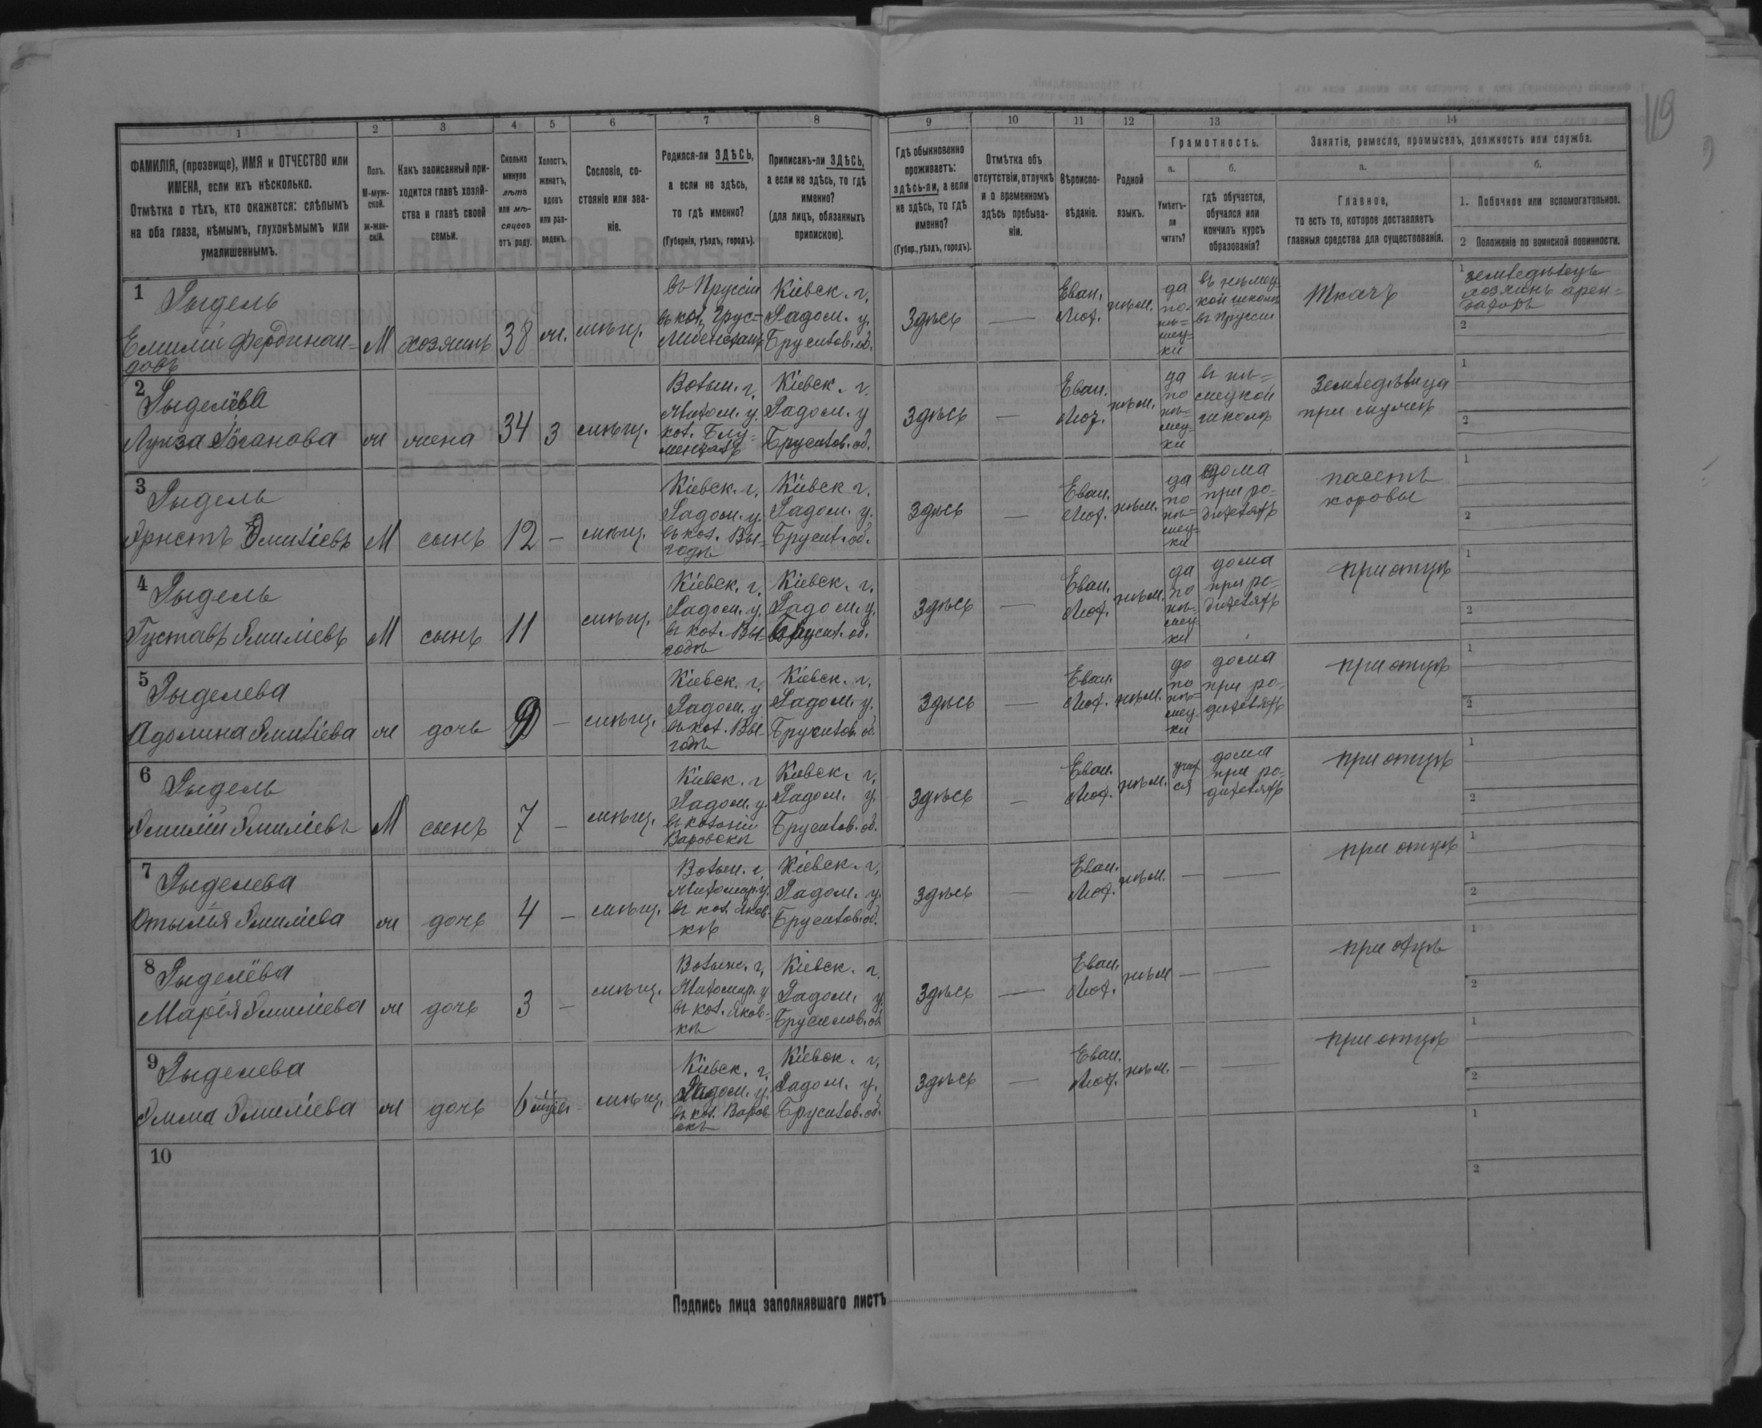 119
1 2 3 4 5 6 7 8 9 10 11 12 13 14
ФАМИЛІЯ, (прозвище), ИМЯ и ОТЧЕСТВО или
ИМЕНА, если ихъ нѣсколько.
Отмѣтка о тѣхъ, кто окажется: слѣпымъ
на оба глаза, нѣмымъ, глухонѣмымъ или
умалишеннымъ.
Полъ.
М-муж-
ской.
ж-жен-
скій.
Какъ записанный при-
ходится главѣ хозяй-
ства и главѣ своей
семьи.
Сколько
минуло
лѣтъ
или мѣ-
сяцевъ
отъ роду.
Холостъ,
женатъ,
вдовъ
или раз-
веденъ.
Сословіе, со-
стояніе или зва-
ніе.
Родился-ли ЗДѢСЬ,
а если не здѣсь,
то гдѣ именно?
(Губернія, уѣздъ, городъ).
Приписанъ-ли ЗДѢСЬ,
а если не здѣсь, то гдѣ
именно?
(для лицъ, обязанныхъ
припискою).
Гдѣ обыкновенно
проживаетъ:
здѣсь-ли, а если
не здѣсь, то гдѣ
именно?
(Губер., уѣздъ, городъ).
Отмѣтка объ
отсутствіи, отлучкѣ
и о временномъ
здѣсь пребыва-
ніи.
Вѣроиспо-
вѣданіе.
Родной
языкъ.
Грамотность.
а.
Умѣетъ-
ли
читать?
б.
Гдѣ обучается,
обучался или
кончилъ курсъ
образованія?
Занятіе, ремесло, промыселъ, должность или служба.
а.
Главное,
то есть то, которое доставляетъ
главныя средства для существованія.
б.
1. Побочное или вспомогательное.
2 Положеніе по воинской повинности.
1 Рыдель
Емилій Фердинан-
довъ
М хозяинъ 38 ж. мѣщ.
въ Пруссіи
въ кол.
Кіевск. г.
Радом. у.
Брусилов. об.
Здѣсь —
Еван.
Лют.
нѣм.
да
по
нѣ=
мец=
ки
въ нѣмец
кой школѣ
въ Пруссіи
Ткачъ
1 земледѣлецъ
хозяинъ арен=
даторъ
2
2 Рыделёва
Луиза Юганова
ж жена 34 з мѣщ.
Волын. г.
Житом. у.
кол.
Кіевск. г.
Радом. у
Брусилов. об.
Здѣсь —
Еван.
Лют.
нѣм.
да
по
нѣ=
мец=
ки
въ нѣ=
мецкой
школѣ
Земледѣлица
при мужѣ
1
2
3 Рыдель
Эрнстъ Эмиліевъ
М сынъ 12 — мѣщ.
Кіевск. г.
Радом. у.
въ кол. Вы=
годѣ
Кіевск г.
Радом. у.
Брусил. об.
Здѣсь —
Еван.
Лют.
нѣм.
да
по
нѣ=
мец=
ки
дома
при ро=
дителяхъ
пасетъ
коровы
1
2
4 Рыдель
Густавъ Эмиліевъ
М сынъ 11 мѣщ.
Кіевск. г.
Радом. у.
въ кол. Вы=
годѣ
Кіевск. г.
Радом. у.
Брусил. об.
Здѣсь —
Еван.
Лют.
нѣм.
да
по
нѣ=
мец
ки
дома
при ро=
дителяхъ
при отцѣ
1
2
5 Рыделева
Адолина Эмиліева
ж дочь 9 — мѣщ.
Кіевск. г.
Радом. у
въ кол. Вы
годѣ
Кіевск. г.
Радом. у.
Брусилов об
Здѣсь —
Еван.
Лют.
нѣм.
да
по
нѣ=
мец
ки
дома
при ро=
дителяхъ
при отцѣ
1
2
6 Рыдель
Эмилій Эмиліевъ
М сынъ 7 — мѣщ.
Кіевск. г
Радом. у.
въ колоніи
Варовскѣ
Кіевск. г.
Радом. у.
Брусилов. об.
Здѣсь —
Еван.
Лют.
нѣм.
учит
ся
дома
при ро=
дителяхъ
при отцѣ
1
2
7 Рыделева
Отылія Эмиліева
ж дочь 4 — мѣщ.
Волын. г.
Житомир. у.
въ кол. Яков
кѣ
Кіевск. г.
Радом. у.
Брусилов. об.
Здѣсь —
Еван.
Лют.
нѣм.
— —
при отцѣ
1
2
8 Рыделёва
Марія Эмиліева
ж дочь 3 — мѣщ.
Волын. г.
Житомир. у
въ кол. Яков-
кѣ
Кіевск. г.
Радом. у
Брусилов. об
Здѣсь —
Еван.
Лют.
нѣм
— —
при отцѣ
1
2
9 Рыделева
Эмма Эмиліева
ж дочь 6 мѣщ.
Кіевск. г.
Радом. у.
въ кол. Варов
скѣ
Кіевск. г.
Радом. у.
Брусилов. об.
Здѣсь —
Еван.
Лют.
нѣм.
— —
при отцѣ
1
2
10
1
2
Подпись лица заполнявшаго листъ